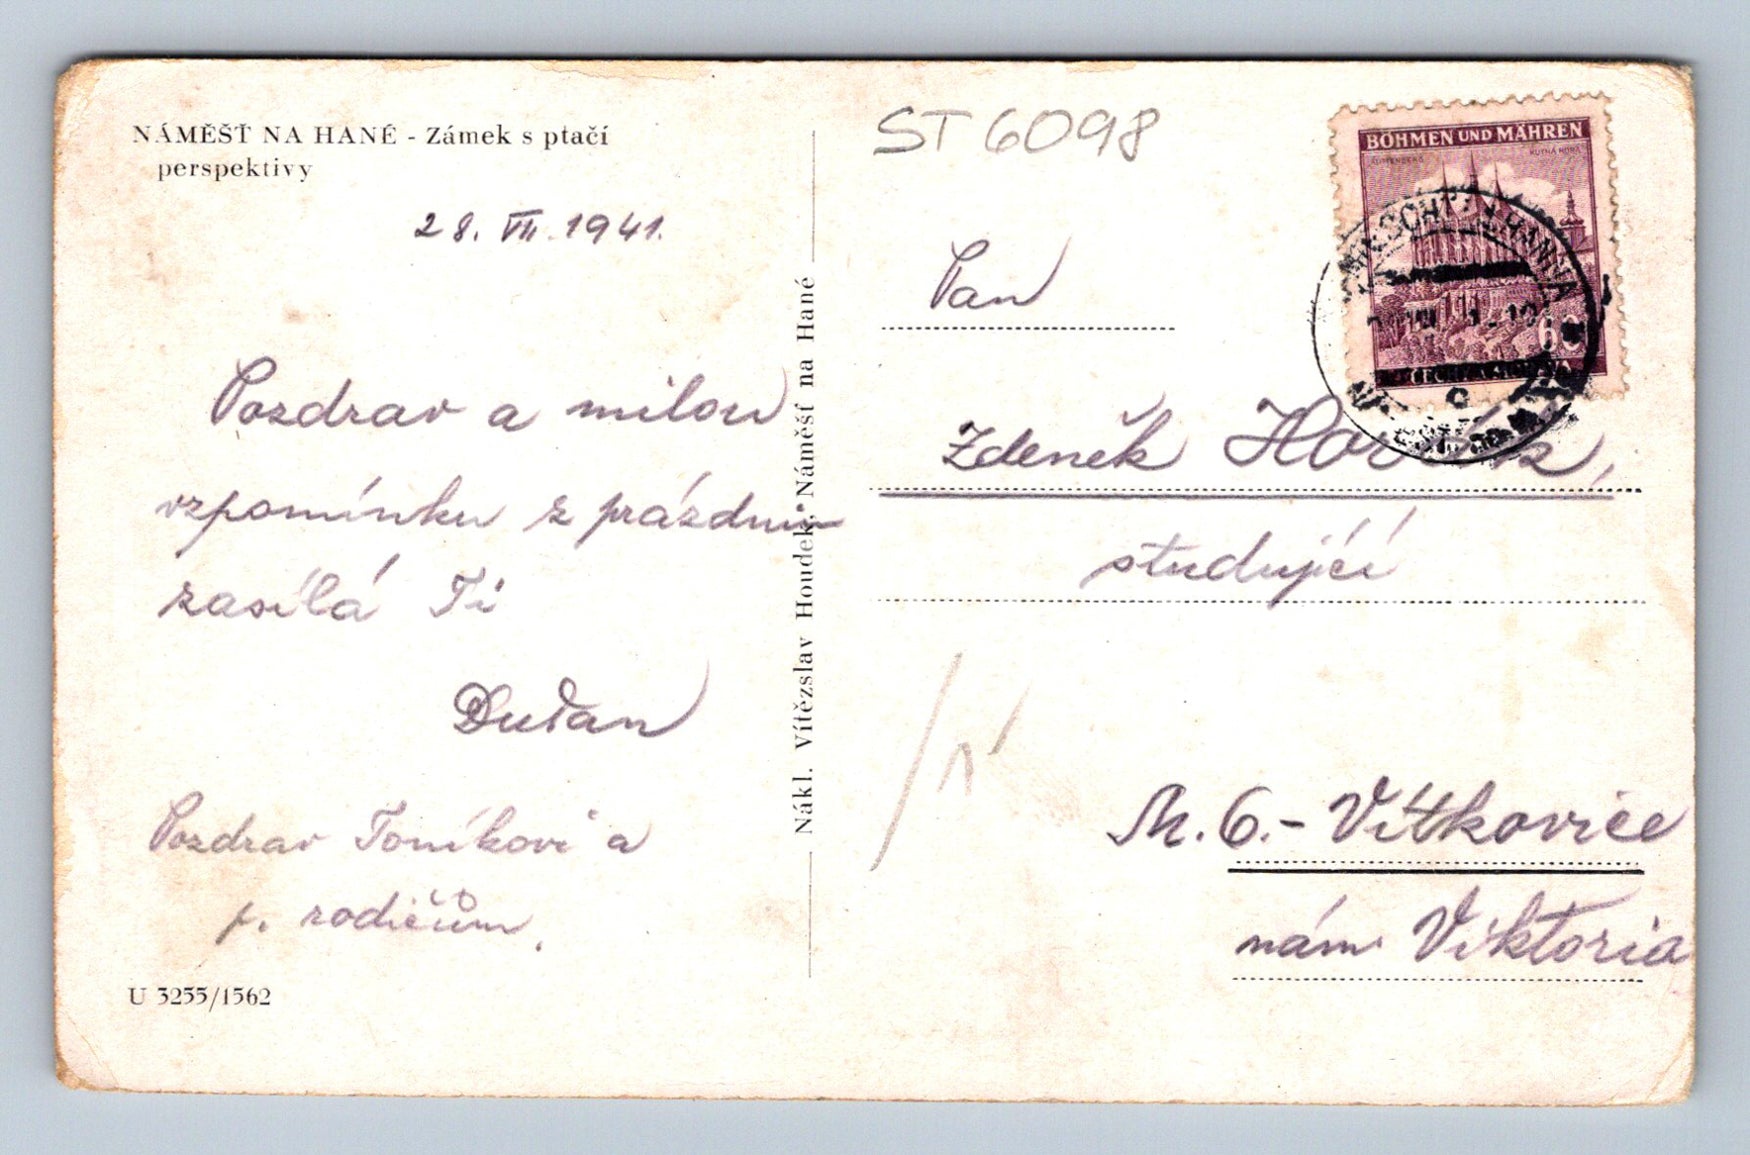 NÁMĚŠŤ NA HANÉ - Zámek s ptačí
perspektivy
28. VII. 1941.
Pozdrav a milou
vzpomínku z prázdnin
zasílá Ti
Dušan
Pozdrav Toníkovi a
p. rodičům.
U 3255/1562
Nákl. Vítězslav Houdek, Náměšť na Hané
ST 6098
BÖHMEN UND MÄHREN
KUTNÁ HORA
60
Pan
Zdeněk Horák,
studující
M. O. - Vítkovice
nám Viktoria